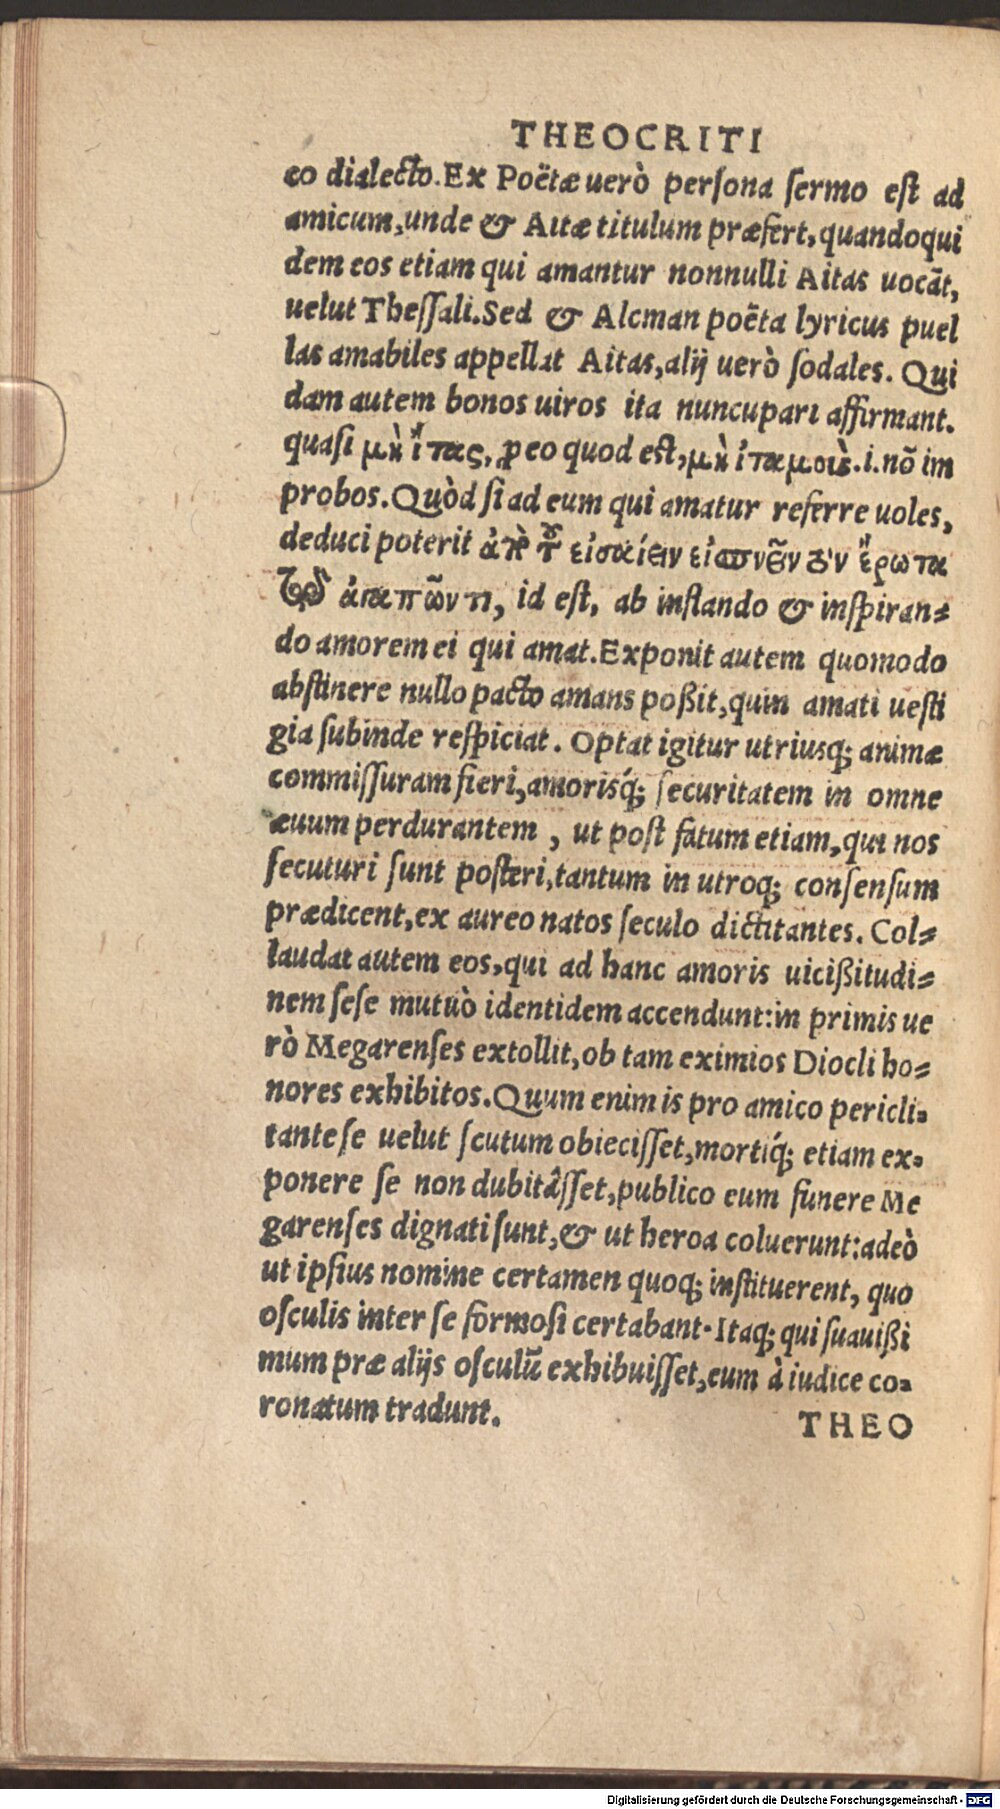 THEOCRITI
eo dialecto. Ex Poëtæ uerò persona sermo est ad
amicum, unde & Aitæ titulum præfert, quandoqui
dem eos etiam qui amantur nonnulli Aitas uocãt,
uelut Thessali. Sed & Alcman poëta lyricus puel
las amabiles appellat Aitas, alij uerò sodales. Qui
dam autem bonos uiros ita nuncupari affirmant.
quasi μὴ ἴτας, ꝓ eo quod est, μὴ ἰταμοὺς .i. nõ im
probos. Quòd si ad eum qui amatur referre uoles,
deduci poterit ἀπὸ τοῦ εἰσαίειν εἰσπνεῖν τὸν ἔρωτα
τῷ ἀγαπῶντι, id est, ab instando & inspiran⸗
do amorem ei qui amat. Exponit autem quomodo
abstinere nullo pacto amans poßit, quin amati uesti
gia subinde respiciat. Optat igitur utriusq; animæ
commissuram fieri, amorisq́; securitatem in omne
æuum perdurantem, ut post fatum etiam, qui nos
secuturi sunt posteri, tantum in utroq; consensum
prædicent, ex aureo natos seculo dictitantes. Col⸗
laudat autem eos, qui ad hanc amoris uicißitudi⸗
nem sese mutuò identidem accendunt: in primis ue
rò Megarenses extollit, ob tam eximios Diocli ho⸗
nores exhibitos. Quum enim is pro amico pericli⸗
tante se uelut scutum obiecisset, mortiq́; etiam ex⸗
ponere se non dubitâsset, publico eum funere Me
garenses dignati sunt, & ut heroa coluerunt: adeò
ut ipsius nomine certamen quoq; instituerent, quo
osculis inter se formosi certabant. Itaq; qui suauißi
mum præ alijs osculũ exhibuisset, eum à iudice co⸗
ronatum tradunt.
THEO
Digitalisierung gefördert durch die Deutsche Forschungsgemeinschaft - DFG